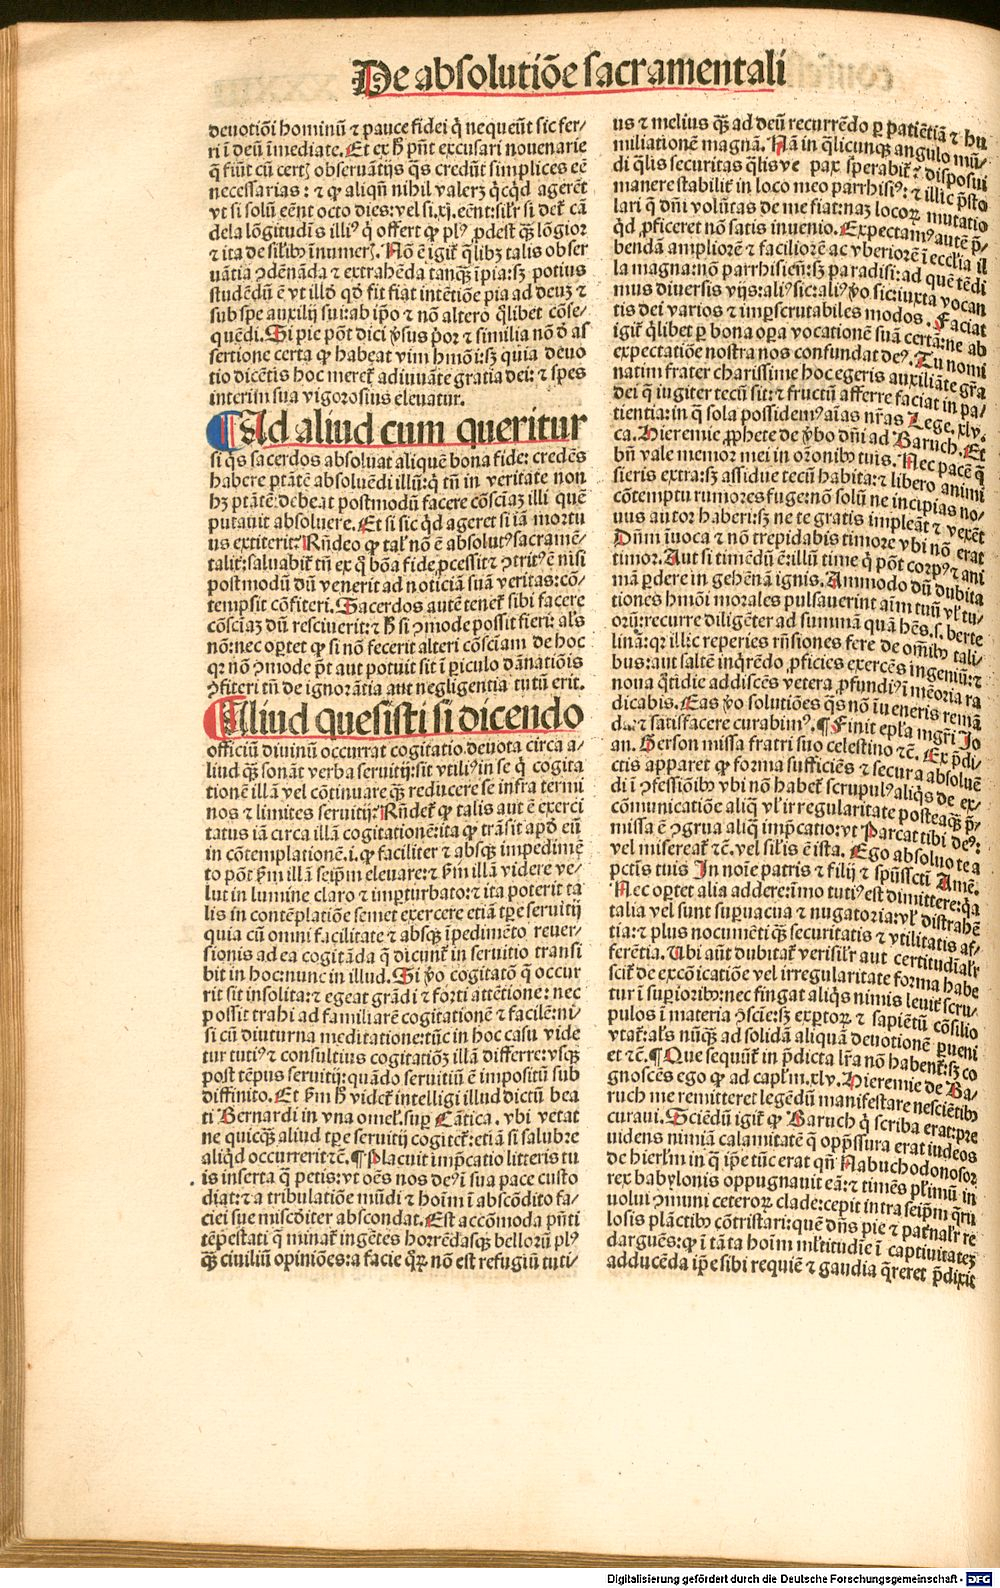 De absolutiōe sacramentali
deuotiōi hominū ⁊ pauce fidei q̇ nequeūt sic fer-
ri ī deū īmediate. Et ex ħ pn̄t excusari nouenarie
q̄ fiūt cū certꝭ obseruātijs q̄s credūt simplices eē
necessarias: ⁊ ꝙ aliqn̄ nihil valerꝫ q̇cqd̄ agerēt
vt si solū eēnt octo dies: vel si .xj. eēnt: silr̄ si det̄ cā
dela lōgitudīs illiꝰ q̇ offert ꝙ plꝰ ꝓdest qꝫ lōgior
⁊ ita de silibꝫ īnumerꝭ. Nō ē igit̄ q̄libꝫ talis obser
uātia ꝯdēnāda ⁊ extrahēda tanqꝫ īpia: sꝫ potius
studēdū ē vt illd̄ qd̄ fit fiat intētiōe pia ad deuꝫ ⁊
sub spe auxilij sui: ab ip̄o ⁊ nō altero q̄libet cōse-
quēdi. Si pie pōt dici ꝟsus p̄or ⁊ similia nō ꝺ̄ as
sertione certa ꝙ habeat vim hmōi: sꝫ quia deuo
tio dicētis hoc meret̄ adiuuāte gratia dei: ⁊ spes
interim sua vigorosius eleuatur.
¶ Ad aliud cum queritur
si q̇s sacerdos absoluat aliquē bona fide: credēs
habere ptātē absoluēdi illū: q̇ tn̄ in veritate non
hꝫ ptātē: debeat postmodū facere cōsciaꝫ illi quē
putauit absoluere. Et si sic qd̄ ageret si iā mortu
us extiterit: Rn̄deo ꝙ tal̄ nō ē absolutꝰ sacramē-
talit̄: saluabit̄ tn̄ ex q̇ bōa fide ꝓcessit ⁊ ꝯtritꝰ ē nisi
postmodū dū venerit ad noticiā suā veritas: cō-
tempsit cōfiteri. Sacerdos autē tenet̄ sibi facere
cōsciaꝫ dū resciuerit: ⁊ ħ si ꝯmode possit fieri: al̄s
nō: nec oꝑtet ꝙ si nō fecerit alteri cōsciam de hoc
qꝛ nō ꝯmode pt̄ aut potuit sit ī ꝑiculo dānatiōis
ꝯfiteri tn̄ de ignorātia aut negligentia tutū erit.
¶ Aliud quesisti si dicendo
officiū diuinū occurrat cogitatio deuota circa a-
liud qꝫ sonāt verba seruitij: sit vtiliꝰ in se q̇ cogita
tionē illā vel cōtinuare qꝫ reducere se infra termi
nos ⁊ limites seruitij: Rn̄det̄ ꝙ talis aut ē exerci
tatus iā circa illā cogitationē: ita ꝙ trāsit apd̄ eū
in cōtemplationē .i. ꝙ faciliter ⁊ absqꝫ impedimē
to pōt ẜm illā seip̄m eleuare: ⁊ ẜm illā videre ve-
lut in lumine claro ⁊ imꝑturbato: ⁊ ita poterit ta
lis in contēplatiōe semet exercere etiā tꝑe seruitij
quia cū omni facilitate ⁊ absqꝫ īpedimēto reuer-
sionis ad ea cogitāda q̄ dicunt̄ in seruitio transi
bit in hoc: nunc in illud. Si ꝟo cogitatō q̄ occur
rit sit insolita: ⁊ egeat grādi ⁊ forti attētione: nec
possit trahi ad familiarē cogitationē ⁊ facilē: ni-
si cū diuturna meditatione: tūc in hoc casu vide
tur tutiꝰ ⁊ consultius cogitatiōꝫ illā differre: vsqꝫ
post tēpus seruitij: quādo seruitiū ē impositū sub
diffinito. Et ẜm ħ videt̄ intelligi illud dictū bea
ti Bernardi in vna omel̄. suꝑ Cātica. vbi vetat
ne quicqꝫ aliud tꝑe seruitij cogitet̄: etiā si salubre
aliq̇d occurrerit ⁊c̄. ¶ Placuit imp̄catio litteris tu
is inserta q̄ petis: vt oēs nos deꝰ ī sua pace custo
diat: ⁊ a tribulatiōe mūdi ⁊ hoīm ī abscōdito fa-
ciei sue misc̄diter abscondat. Est accōmoda pn̄ti
tēpestati q̄ minat̄ ingētes horrēdasqꝫ bellorū plꝰ
qꝫ ciuiliū opiniōes: a facie q̄ꝝ nō est refugiū tuti-
us ⁊ melius qꝫ ad deū recurrēdo ꝑ patiētiā ⁊ hu
miliationē magnā. Nā in q̄licunqꝫ angulo mū-
di q̄lis securitas q̄lisve pax sperabit̄ ⁊ disposui
manere stabilit̄ in loco meo parrhisiꝰ: ⁊ illic p̄sto
lari q̄ dn̄i volūtas de me fiat: naꝫ locoꝝ mutatio
qd̄ ꝓficeret nō satis inuenio. Expectamꝰ autē p̄-
bendā ampliorē ⁊ faciliorē ac vberiorē ī ecclia il
la magna: nō parrhisieñ: sꝫ paradisi: ad quē tēdi
mus diuersis vijs: aliꝰ sic: aliꝰ ꝟo sic: iuxta vocan
tis dei varios ⁊ imꝑscrutabiles modos. Faciat
igit̄ q̄libet ꝑ bona oꝑa vocationē suā certā: ne ab
expectatiōe nostra nos confundat deꝰ. Tu nomi
natim frater charissime hoc egeris auxiliāte gr̄a
dei q̄ iugiter tecū sit: ⁊ fructū afferre faciat in pa-
tientia: in q̄ sola possidemꝰ aīas nr̄as. Lege .xlv.
ca. Hieremie ꝓphete de ꝟbo dn̄i ad Baruch. Et
bn̄ vale memor mei in or̄onibꝫ tuis. Nec pacē q̄
sieris extra: sꝫ assidue tecū habita: ⁊ libero animi
cōtemptu rumores fuge: nō solū ne incipias no-
uus autor haberi: sꝫ ne te gratis impleāt ⁊ vexēt
Dn̄m iuoca ⁊ nō trepidabis timore vbi nō erat
timor. Aut si timēdū ē: illū time q̇ pōt corpꝰ ⁊ ani
mā ꝑdere in gehēnā ignis. Ammodo dū dubita
tiones hmōi morales pulsauerint aīm tuū vl̄ tu-
orū: recurre diligēter ad summā quā hēs .s. berte
linā: qꝛ illic reperies rn̄siones fere de oībꝫ tali-
bus: aut saltē inq̇rēdo ꝓficies exercēs ingeniū: ⁊
noua q̇tidie addiscēs vetera ꝓfundiꝰ ī mēoria ra
dicabis. Eas ꝟo solutiōes q̄s nō īueneris remā
da: ⁊ satisfacere curabimꝰ. ¶ Finit epl̄a mgr̄i Jo
an. Gerson missa fratri suo celestino ⁊c̄. Ex p̄di-
ctis apparet ꝙ forma sufficiēs ⁊ secura absoluē
di ī ꝯfessiōibꝫ vbi nō habet̄ scrupulꝰ aliq̇s de ex-
cōmunicatiōe aliq̄ vl̄ irregularitate posteaqꝫ p̄-
missa ē ꝯgrua aliq̄ imp̄catio: vt Parcat tibi deꝰ:
vel misereat̄ ⁊c̄. vel sil̄is ē ista. Ego absoluo te a
pctīs tuis In noīe patris ⁊ filij ⁊ spūsscti Amē.
Nec oꝑtet alia addere: īmo tutiꝰ est dimittere: q̇a
talia vel sunt suꝑuacua ⁊ nugatoria: vl̄ distrahē
tia: ⁊ plus nocumēti qꝫ securitatis ⁊ vtilitatis af-
ferētia. Ubi aūt dubitat̄ verisil̄r aut certitudīal̄r
scit̄ de excōicatiōe vel irregularitate forma habe
tur ī suꝑioribꝫ: nec fingat aliq̇s nimis leuit̄ scru-
pulos ī materia ꝯscie: sꝫ exꝑtoꝝ ⁊ sapiētū cōsilio
vtat̄: al̄s nūqꝫ ad solidā aliquā deuotionē ꝑueni
et ⁊c̄. ¶ Que sequūt̄ in p̄dicta lr̄a nō habent̄: sꝫ co
gnoscēs ego ꝙ ad caplm̄ .xlv. Hieremie de Ba-
ruch me remitteret legēdū manifestare nesciētibꝫ
curaui. Sciēdū igit̄ ꝙ Baruch q̇ scriba erat: pre
uidens nimiā calamitatē q̄ opp̄ssura erat iudeos
de hierlm̄ in q̄ ip̄e tūc erat qn̄ Nabuchodonosor
rex babylonis oppugnauit eā: ⁊ timēs pl̄imū in
uolui ꝯmuni ceteroꝝ clade: cepit intra seip̄m q̄ru
losis plāctibꝫ cōtristari: quē dn̄s pie ⁊ patnal̄r re
darguēs: ꝙ ī tāta hoīm ml̄titudīe ī captiuitateꝫ
adducēda ip̄e sibi requiē ⁊ gaudia q̄reret p̄dixit
Digitalisierung gefördert durch die Deutsche Forschungsgemeinschaft - DFG